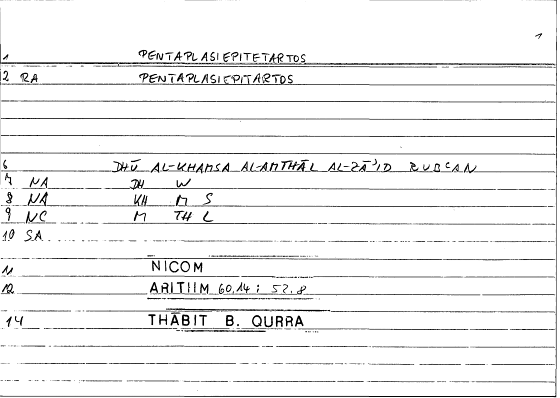 1
1 PENTAPLASIEPITETARTOS
2 RA PENTAPLASIEPITARTOS
6 DHŪ AL-KHAMSA AL-AMTHĀL AL-ZĀʾID RUBCAN
7 NA DH W
8 NA KH M S
9 NC M TH L
10 SA
11 NICOM
12 ARITIIM 60,14 : 52.8
14 THĀBIT B. QURRA